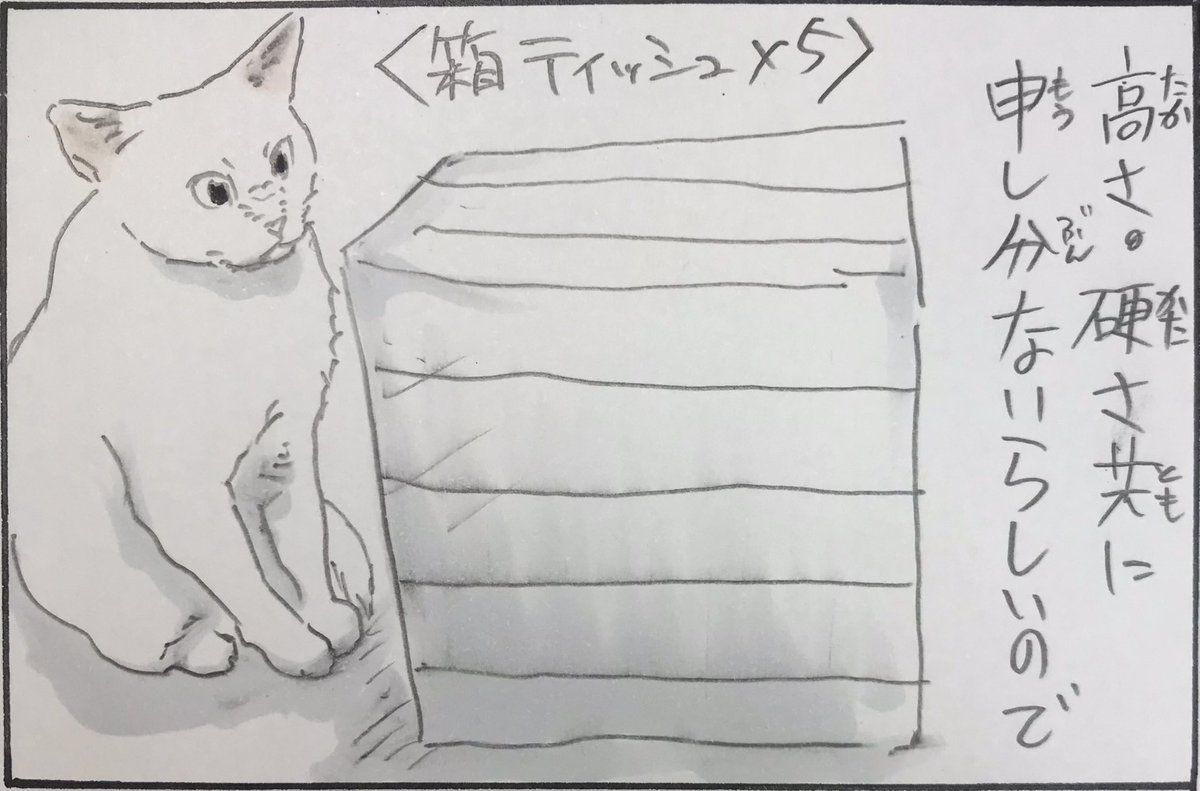 高さ・硬さ共に
申し分ないらしいので
〈箱ティッシュ×5〉